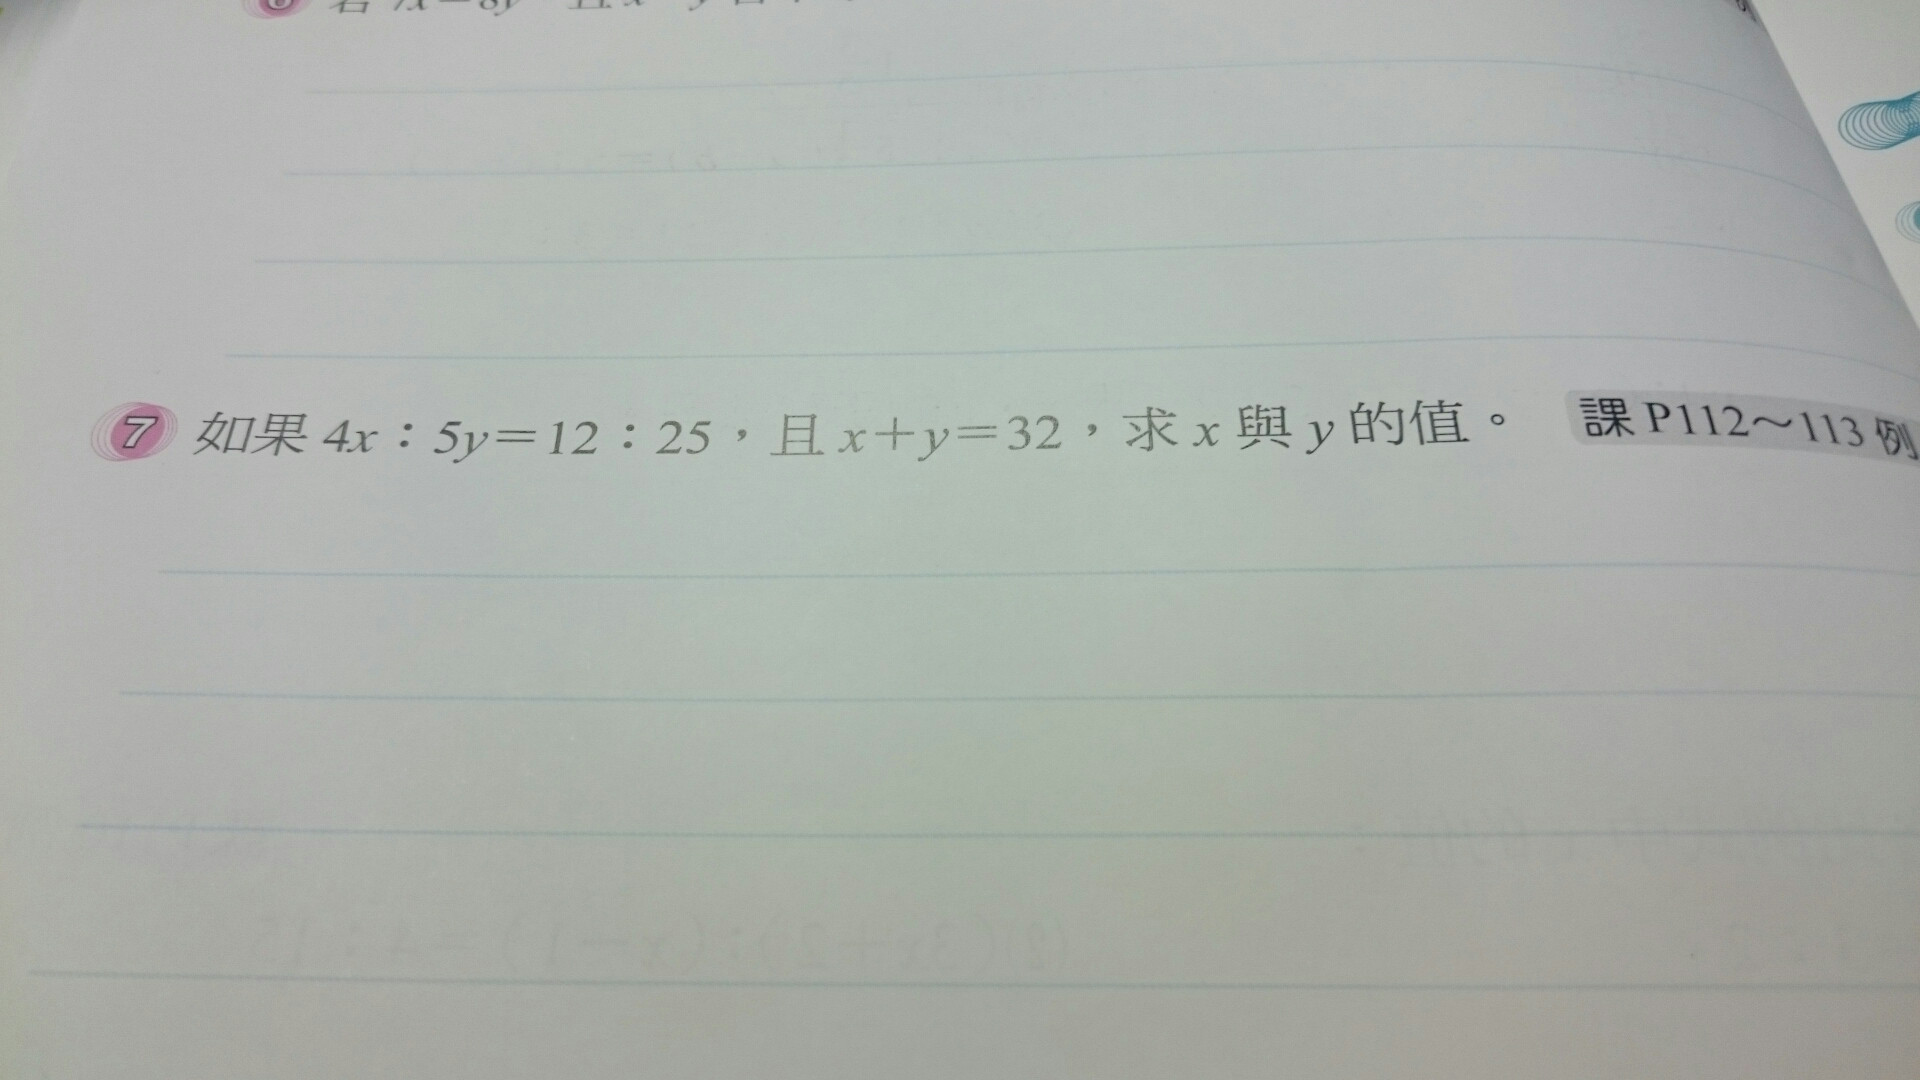 7 如果 4x：5y＝12：25，且 x＋y＝32，求 x 與 y 的值。 課 P112～113 例